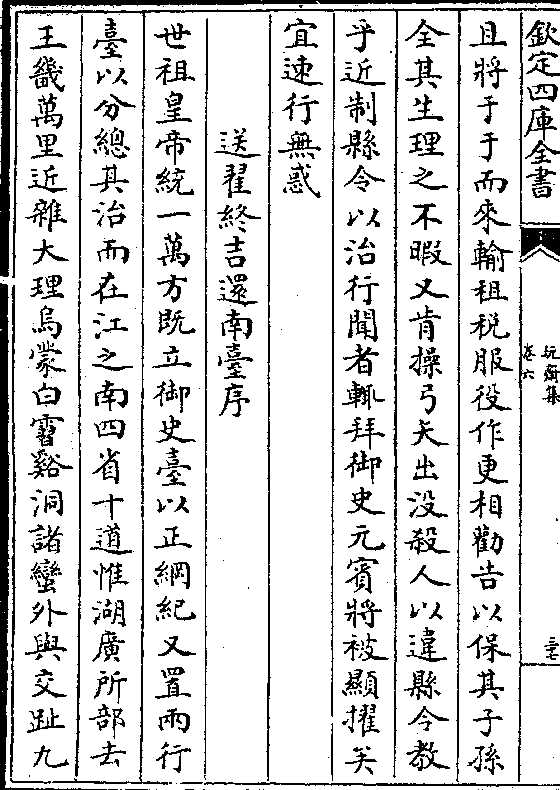 欽定四庫全書
玩齋集
卷六
三七
且將于于而來輸租税服役作更相勸告以保其子孫
全其生理之不暇又肯操弓矢出没殺人以違縣令教
乎近制縣令以治行聞者輒拜御史元賓將被顯擢矣
宜速行無惑
送翟終吉還南臺序
世祖皇帝統一萬方既立御史臺以正綱紀又置兩行
臺以分總其治而在江之南四省十道惟湖廣所部去
王畿萬里近雜大理烏蒙白霫谿洞諸蠻外與交趾九